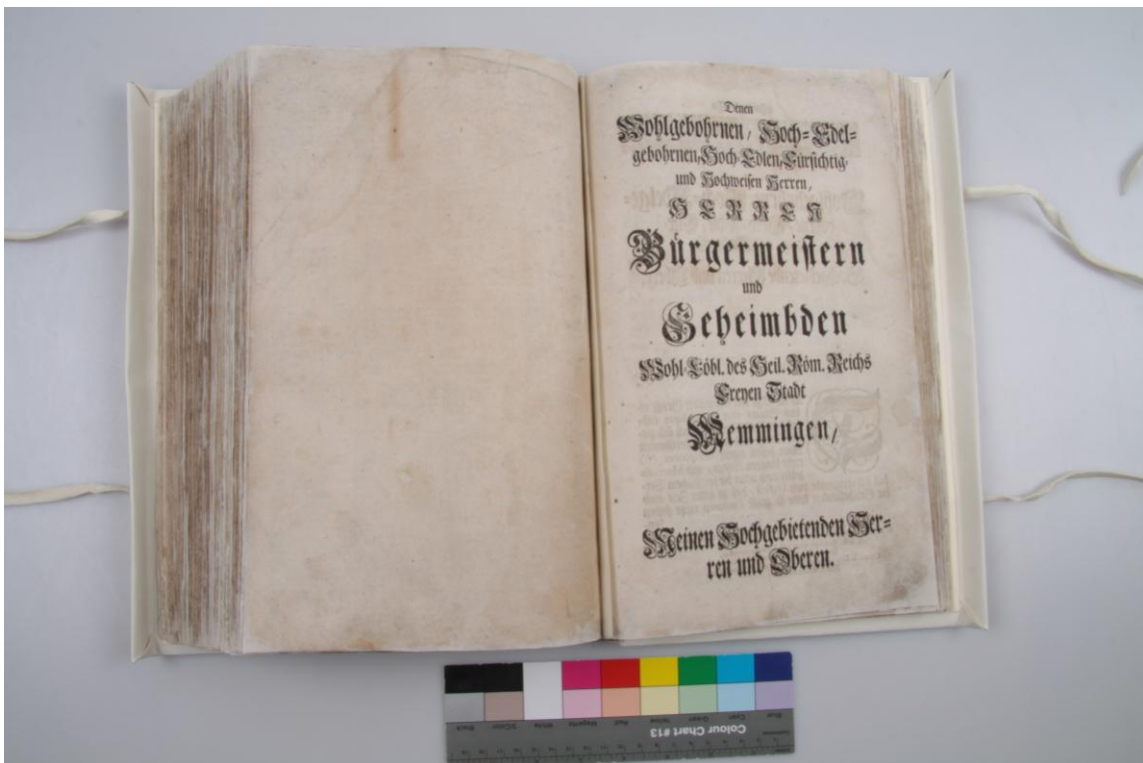 Denen
Wohlgebohrnen, Hoch-Edel-
gebohrnen, Hoch-Edlen, Fürsichtig-
und Hochweisen Herren,
HERREN
Bürgermeistern
und
Geheimbden
Wohl-Löbl. des Heil. Röm. Reichs
Freyen Stadt
Memmingen,
Meinen Hochgebietenden Her-
ren und Oberen.
Blue
Cyan
Green
Yellow
Red
Magenta
White
3/Color
Black
Colour Chart #13